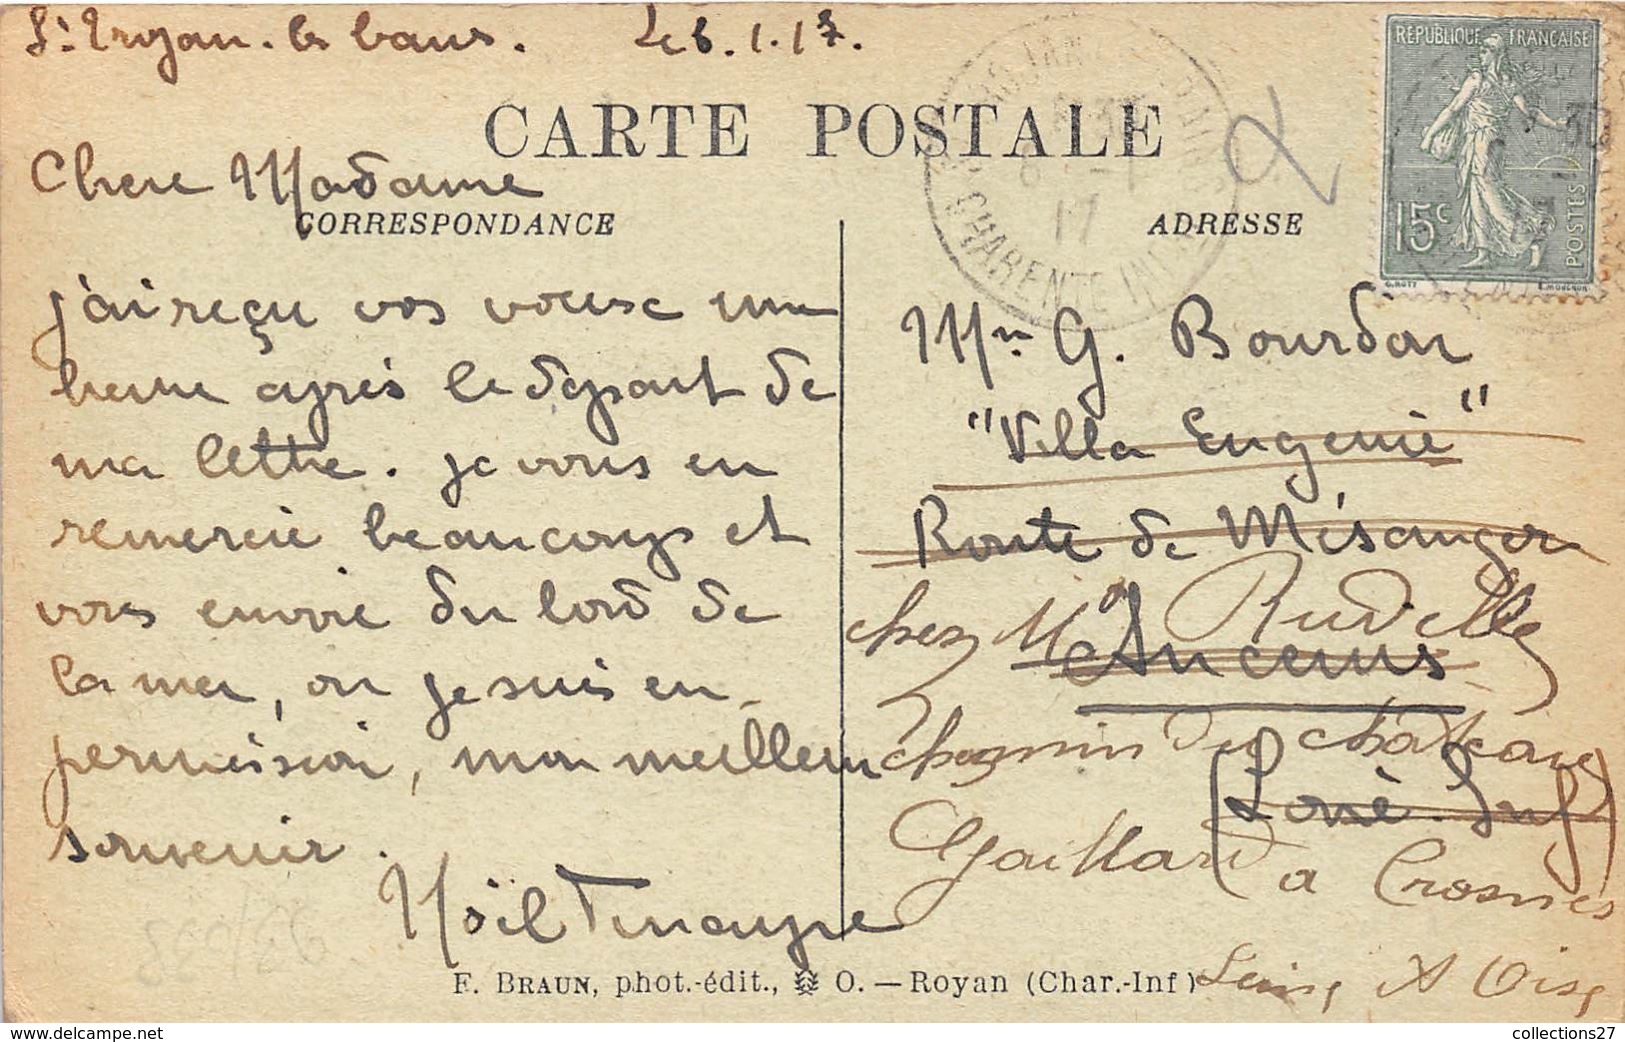 St Trojan-les bains. Le 6.1.17.
RÉPUBLIQUE FRANÇAISE
15c
POSTES
CARTE POSTALE
CHARENTE INF
8 -1
17
CORRESPONDANCE
ADRESSE
Chere Madame
j'ai reçu vos vœux une
heure après le départ de
ma lettre. je vous en
remercie beaucoup et
vous envoie du bord de
la mer, ou je suis en
permission, mon meilleur
souvenir.
Noël
Mr G. Bourdon
"Villa Eugenie"
Route de Mésanger
Ancenis
(Loire-Inf)
chez Md Rudelle
chemin du chateau
Gaillard a Crosnes
Seine & Oise
F. BRAUN, phot.-édit., O. — Royan (Char.-Inf)
collections27